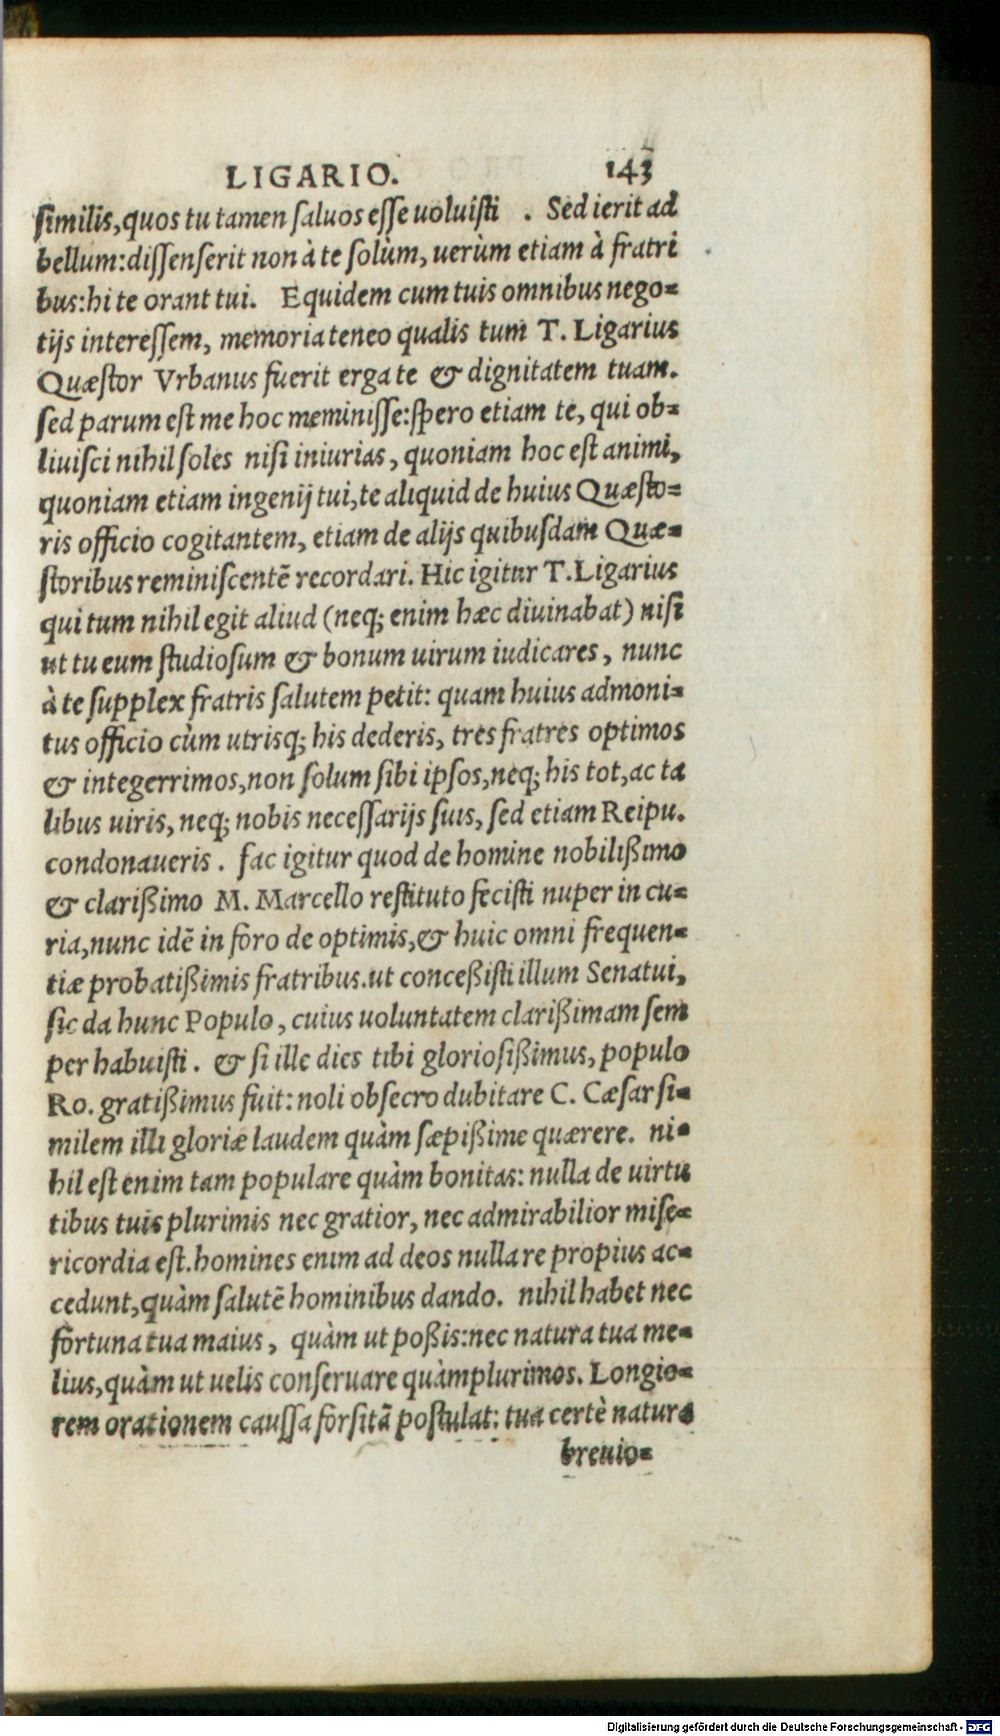 LIGARIO. 143
similis, quos tu tamen saluos esse uoluisti . Sed ierit ad
bellum: dissenserit non à te solùm, uerùm etiam à fratri
bus: hi te orant tui. Equidem cum tuis omnibus nego=
tijs interessem, memoria teneo qualis tum T. Ligarius
Quæstor Vrbanus fuerit erga te & dignitatem tuam.
sed parum est me hoc meminisse: spero etiam te, qui ob=
liuisci nihil soles nisi iniurias, quoniam hoc est animi,
quoniam etiam ingenij tui, te aliquid de huius Quæsto=
ris officio cogitantem, etiam de alijs quibusdam Quæ=
storibus reminiscentē recordari. Hic igitur T. Ligarius
qui tum nihil egit aliud (neq; enim hæc diuinabat) nisi
ut tu eum studiosum & bonum uirum iudicares, nunc
à te supplex fratris salutem petit: quam huius admoni=
tus officio cùm utrisq; his dederis, tres fratres optimos
& integerrimos, non solum sibi ipsos, neq; his tot, ac ta
libus uiris, neq; nobis necessarijs suis, sed etiam Reipu.
condonaueris. fac igitur quod de homine nobilißimo
& clarißimo M. Marcello restituto fecisti nuper in cu=
ria, nunc idē in foro de optimis, & huic omni frequen=
tiæ probatißimis fratribus. ut conceßisti illum Senatui,
sic da hunc Populo, cuius uoluntatem clarißimam sem
per habuisti. & si ille dies tibi gloriosißimus, populo
Ro. gratißimus fuit: noli obsecro dubitare C. Cæsar si=
milem illi gloriæ laudem quàm sæpißime quærere. ni=
hil est enim tam populare quàm bonitas: nulla de uirtu
tibus tuis plurimis nec gratior, nec admirabilior mise=
ricordia est. homines enim ad deos nulla re propius ac=
cedunt, quàm salutē hominibus dando. nihil habet nec
fortuna tua maius, quàm ut poßis: nec natura tua me=
lius, quàm ut uelis conseruare quàmplurimos. Longio=
rem orationem caussa forsitā postulat: tua certè natura
breuio=
Digitalisierung gefördert durch die Deutsche Forschungsgemeinschaft - DFG